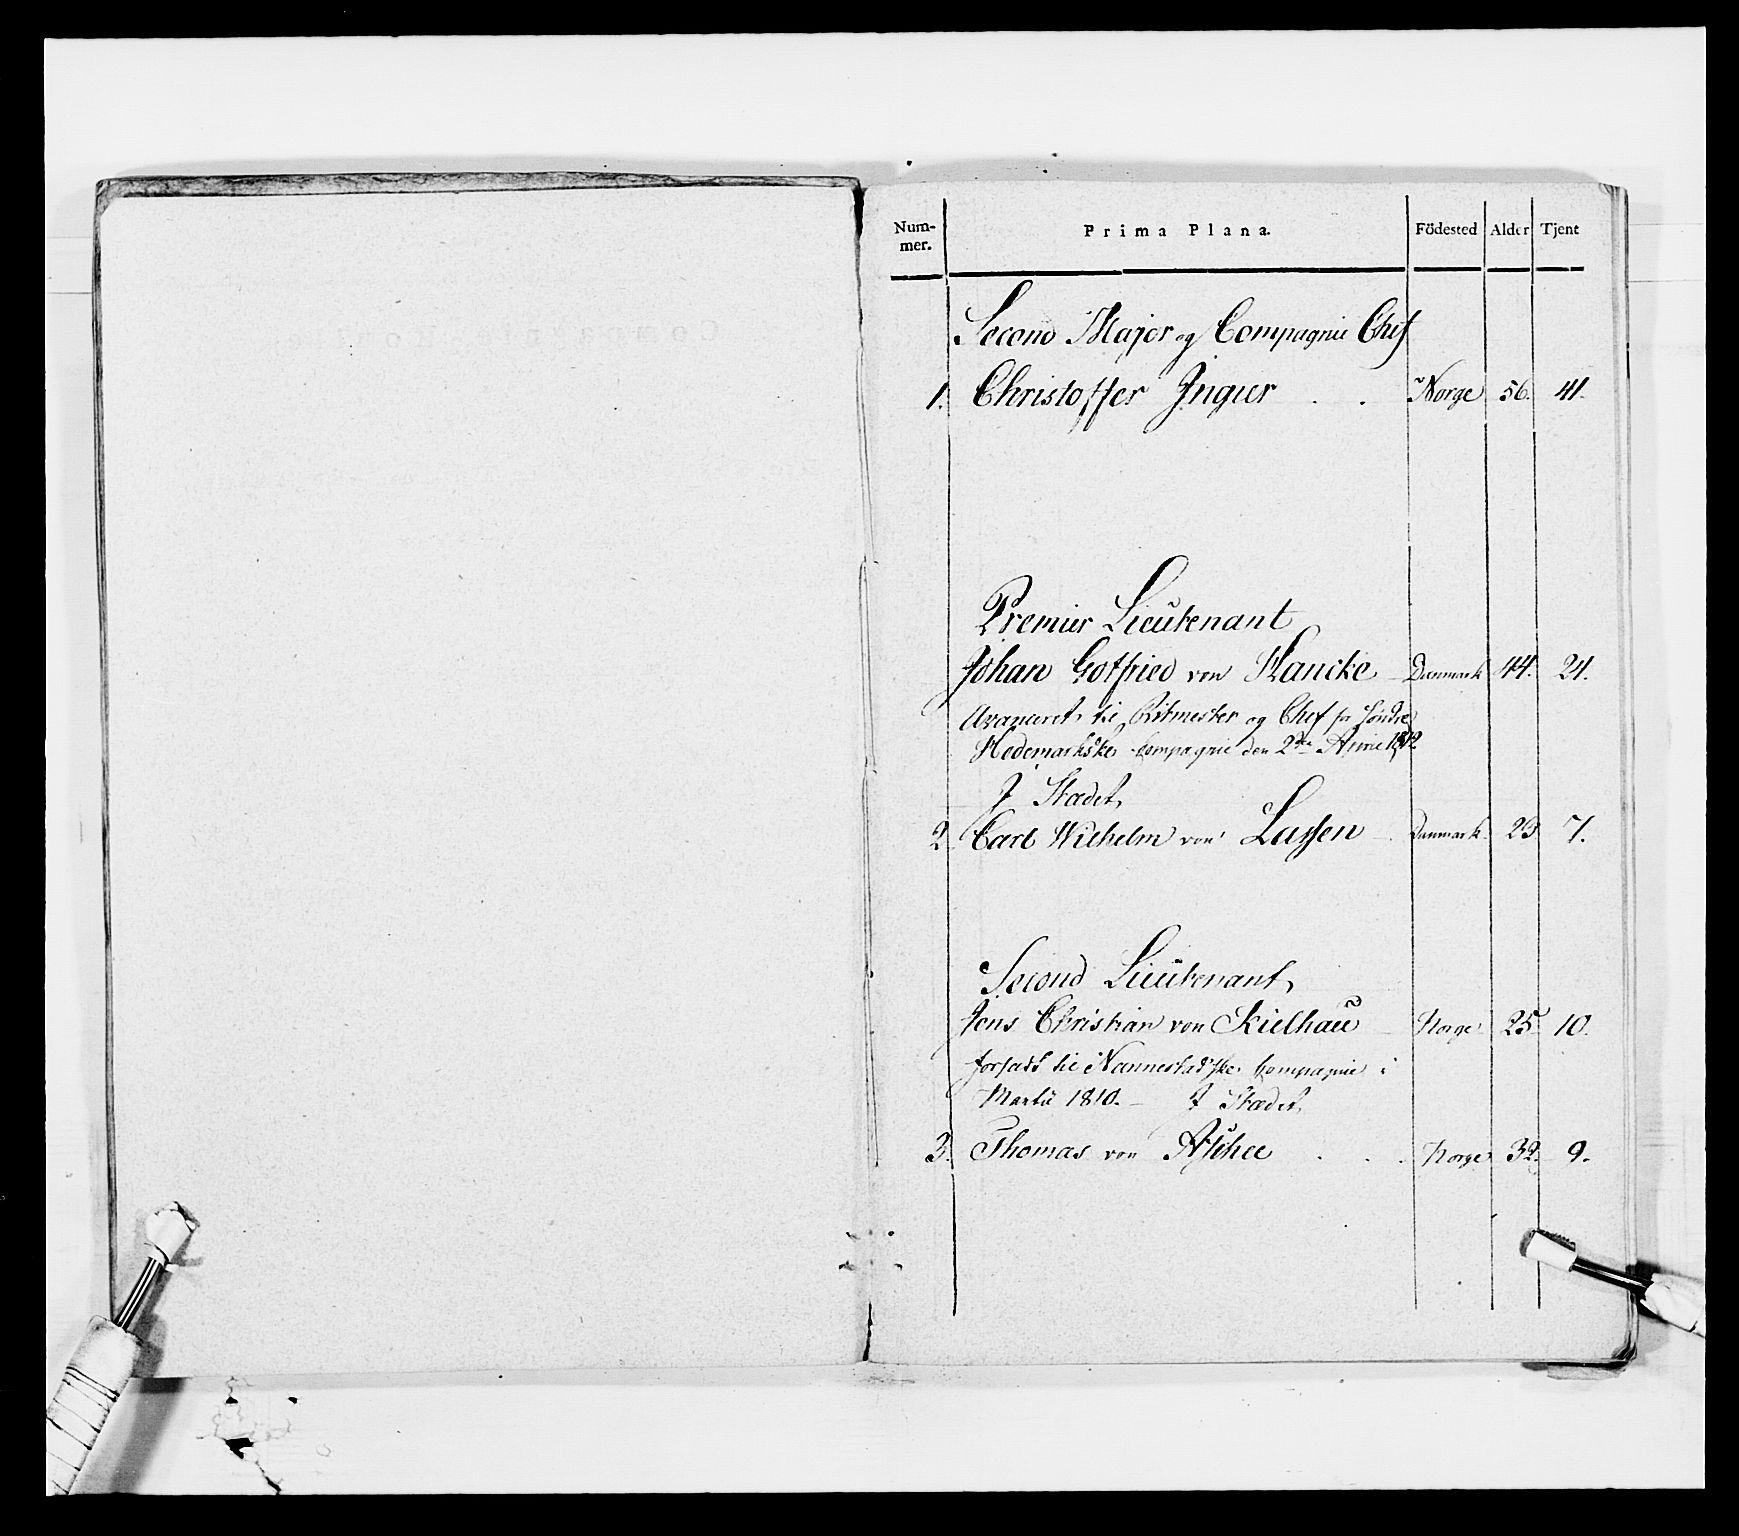 Num-
mer.
Prima Plana.
Födested
Alder
Tjent
Second Major og Compagnie Chef
1. Christoffer Ingier . . Norge 56. 41.
Premier Lieutenant
Johan Gotfried von Hancke Danmark 44. 24.
Avanceret til Ritmester og Chef for Søndre
Hedemarkske Compagnie den 2de 1812
I Stædet,
2. Carl Wilhelm von Lassen Danmark 23 7.
Second Lieutenant,
Jens Christian von Kielhau Norge 25 10.
forsadt til Nannestadske Compagnie i
Martii 1810. I Stædet,
3. Thomas von . . . Norge 32. 9.